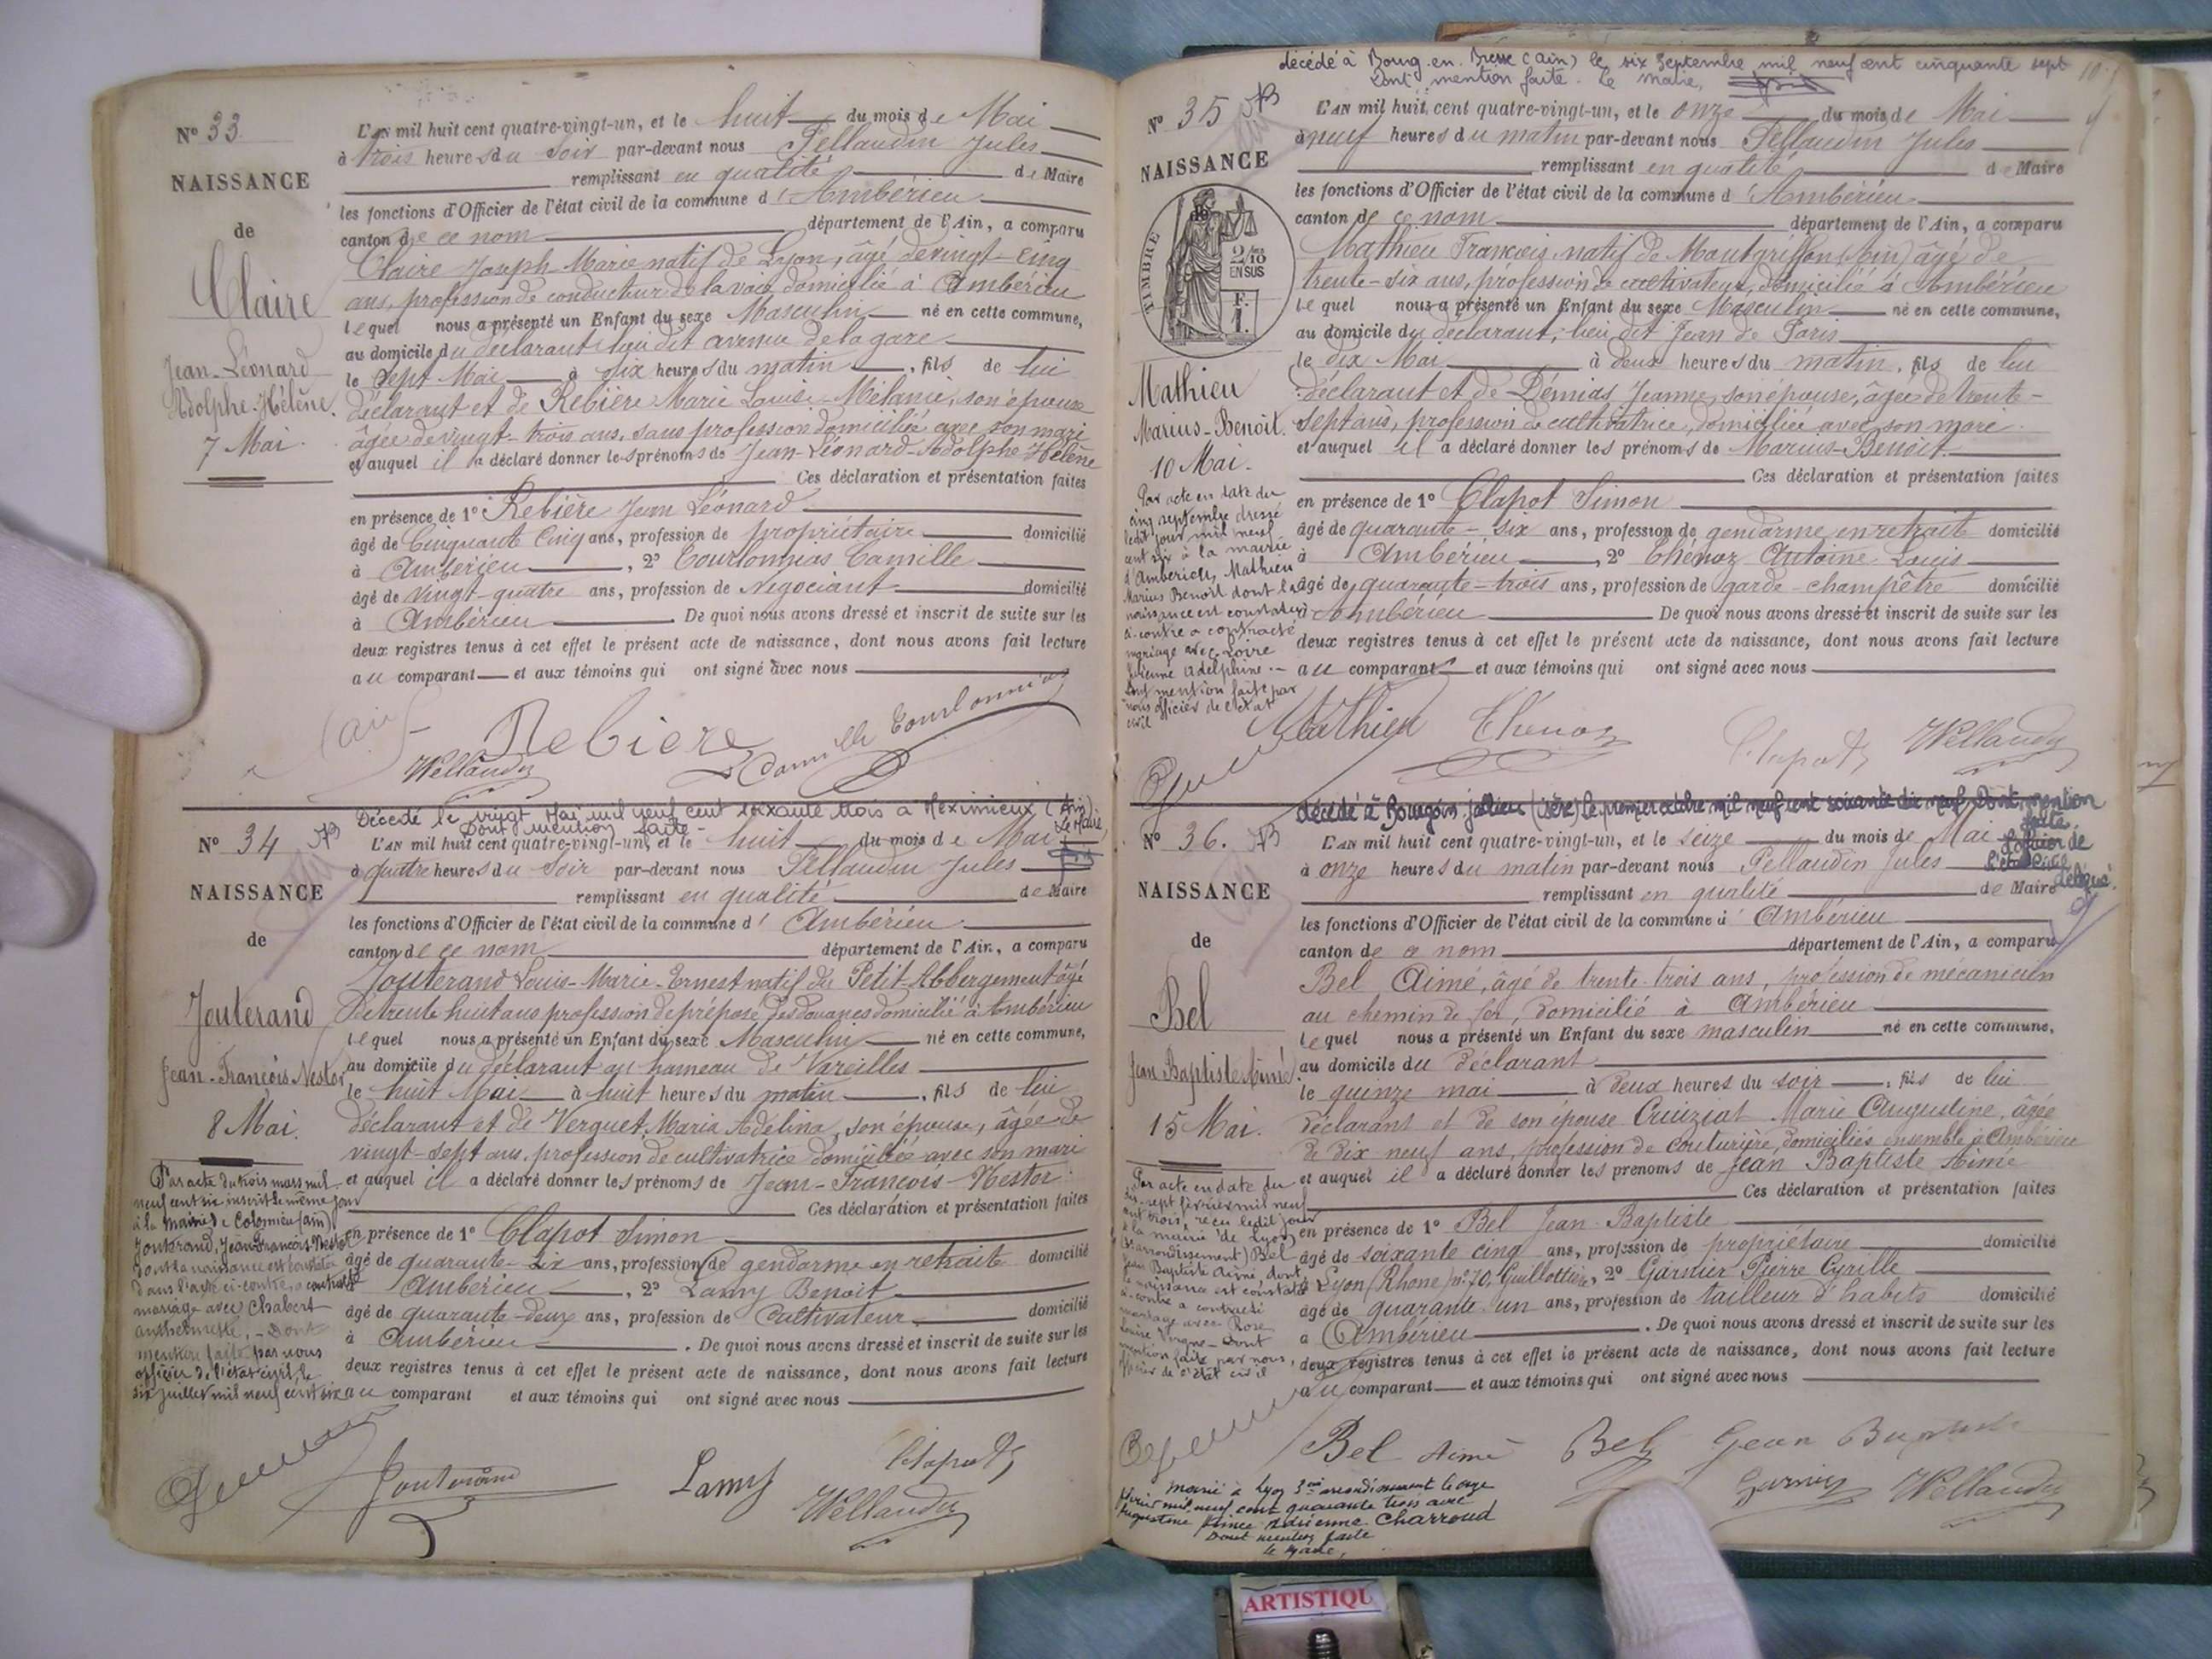 N° 33
NAISSANCE
de
Claire
Jean-Léonard
Adolphe-Hélène.
7 Mai.
L'AN mil huit cent quatre-vingt-un, et le huit du mois de Mai
à trois heures du soir par-devant nous Pellaudin Jules
remplissant en qualité de Maire
les fonctions d'Officier de l'état civil de la commune d'Ambérieu
canton de ce nom département de l'Ain, a comparu
Claire Joseph-Marie natif de Lyon, âgé de vingt-cinq
ans, profession de conducteur de la voie, domicilié à Ambérieu
lequel nous a présenté un Enfant du sexe Masculin né en cette commune,
au domicile du déclarant, lieu dit avenue de la gare
le sept Mai à six heures du matin, fils de lui
déclarant et de Rebière Marie Louise-Mélanie, son épouse
âgée de vingt-trois ans, sans profession domiciliée avec son mari
et auquel il a déclaré donner les prénoms de Jean-Léonard-Adolphe Hélène
Ces déclaration et présentation faites
en présence de 1° Rebière Jean Léonard
âgé de Cinquante Cinq ans, profession de propriétaire domicilié
à Ambérieu, 2° Tourlonnias Camille
âgé de vingt-quatre ans, profession de Négociant domicilié
à Ambérieu De quoi nous avons dressé et inscrit de suite sur les
deux registres tenus à cet effet le présent acte de naissance, dont nous avons fait lecture
au comparant et aux témoins qui ont signé avec nous
Rebière
Camille Tourlonnias
Pellaudin
Décédé le vingt Mai mil neuf cent soixante trois à Meximieux (Ain).
Dont mention faite - Le Maire
N° 34
NAISSANCE
de
Jouterand
Jean-François Nestor
8 Mai.
L'AN mil huit cent quatre-vingt-un, et le huit du mois de Mai
à quatre heures du soir par-devant nous Pellaudin Jules
remplissant en qualité de Maire
les fonctions d'Officier de l'état civil de la commune d' Ambérieu
canton de ce nom département de l'Ain, a comparu
Jouterand Louis-Marie-Ernest natif du Petit-Abbergement âgé
de trente huit ans profession de préposé des douanes domicilié à Ambérieu
lequel nous a présenté un Enfant du sexe Masculin né en cette commune,
au domicile du déclarant au hameau de Vareilles
le huit Mai à huit heures du matin, fils de lui
déclarant et de Verguet Maria Adelina, son épouse, âgée de
vingt-sept ans, profession de cultivatrice domiciliée avec son mari
et auquel il a déclaré donner les prénoms de Jean-François-Nestor
Ces déclaration et présentation faites
en présence de 1° Clapot Simon
âgé de quarante-six ans, profession de gendarme en retraite domicilié
à Ambérieu, 2° Lamy Benoit
âgé de quarante-deux ans, profession de Cultivateur domicilié
à Ambérieu. De quoi nous avons dressé et inscrit de suite sur les
deux registres tenus à cet effet le présent acte de naissance, dont nous avons fait lecture
au comparant et aux témoins qui ont signé avec nous
Par acte du trois mars mil
neuf cent six inscrit le même jour
à la Mairie de Colomieu (ain)
Jouterand, Jean François-Nestor
dont la naissance est constatée
dans l'acte ci-contre, a contracté
mariage avec Chabert
anthelmette, - Dont
mention faite par nous
officier de l'état civil, le
six juillet mil neuf cent six
Jouterand
Lamy
Clapot
Pellaudin
décédé à Bourg-en-Bresse (ain) le six Septembre mil neuf cent cinquante sept
Dont mention faite. Le Maire,
N° 35
NAISSANCE
de
TIMBRE
2/10
EN SUS
F.
1.
Mathieu
Marius-Benoit.
10 Mai.
L'AN mil huit cent quatre-vingt-un, et le onze du mois de Mai
à neuf heures du matin par-devant nous Pellaudin Jules
remplissant en qualité de Maire
les fonctions d'Officier de l'état civil de la commune d'Ambérieu
canton de ce nom département de l'Ain, a comparu
Mathieu François, natif de Montgriffon (ain) âgé de
trente-six ans, profession de cultivateur, domicilié à Ambérieu
lequel nous a présenté un Enfant du sexe Masculin né en cette commune,
au domicile du déclarant, lieu dit Jean de Paris
le dix Mai à deux heures du matin, fils de lui
déclarant et de Démias Jeanne, son épouse, âgée de trente-
sept ans, profession de cultivatrice, domiciliée avec son mari
et auquel il a déclaré donner les prénoms de Marius-Benoit
Ces déclaration et présentation faites
en présence de 1° Clapot Simon
âgé de quarante-six ans, profession de gendarme en retraite domicilié
à Ambérieu, 2° Chénoz Antoine-Louis
âgé de quarante-trois ans, profession de garde-champêtre domicilié
à Ambérieu De quoi nous avons dressé et inscrit de suite sur les
deux registres tenus à cet effet le présent acte de naissance, dont nous avons fait lecture
au comparant et aux témoins qui ont signé avec nous
Par acte en date du
cinq septembre dressé
ledit jour mil neuf
cent six à la mairie
d'Ambérieu, Mathieu
Marius Benoit dont la
naissance est constatée
ci-contre a contracté
mariage avec Loire
Julienne Adelphine.-
Dont mention faite par
nous officier de l'état
civil
Mathieu
Chénoz
Clapot
Pellaudin
décédé à Bourgoin-Jallieu (Isère) le premier octobre mil neuf cent soixante dix neuf. Dont mention
faite.
L'officier de
l'état civil
délégué.
N° 36.
NAISSANCE
de
Bel
Jean Baptiste Aimé
15 Mai.
L'AN mil huit cent quatre-vingt-un, et le seize du mois de Mai
à onze heures du matin par-devant nous Pellaudin Jules
remplissant en qualité de Maire
les fonctions d'Officier de l'état civil de la commune d' Ambérieu
canton de ce nom département de l'Ain, a comparu
Bel Aimé, âgé de trente-trois ans, profession de mécanicien
au chemin de fer, domicilié à Ambérieu
lequel nous a présenté un Enfant du sexe masculin né en cette commune,
au domicile du déclarant
le quinze mai à deux heures du soir, fils de lui
déclarant et de son épouse Cruiziat Marie Augustine, âgée
de dix neuf ans, profession de couturière, domiciliés ensemble à Ambérieu
et auquel il a déclaré donner les prénoms de Jean Baptiste Aimé
Ces déclaration et présentation faites
en présence de 1° Bel Jean-Baptiste
âgé de soixante cinq ans, profession de propriétaire domicilié
à Lyon (Rhône) n° 70, Guillottière, 2° Garnier Pierre Cyrille
âgé de quarante un ans, profession de tailleur d'habits domicilié
à Ambérieu. De quoi nous avons dressé et inscrit de suite sur les
deux registres tenus à cet effet le présent acte de naissance, dont nous avons fait lecture
au comparant et aux témoins qui ont signé avec nous
Par acte en date du
dix-sept février mil neuf
cent trois, reçu ledit jour
à la mairie de Lyon
arrondissement) Bel
Jean Baptiste Aimé dont
la naissance est constatée
ci-contre a contracté
mariage avec Rose
Louise Vergne - Dont
mention faite par nous,
officier de l'état civil
Bel Aimé
Bel Jean Baptiste
Garnier
Pellaudin
Marié à Lyon 3me arrondissement le onze
février mil neuf cent quarante trois avec
Augustine Adrienne Charroud
Dont mention faite
Le Maire,
ARTISTIQU